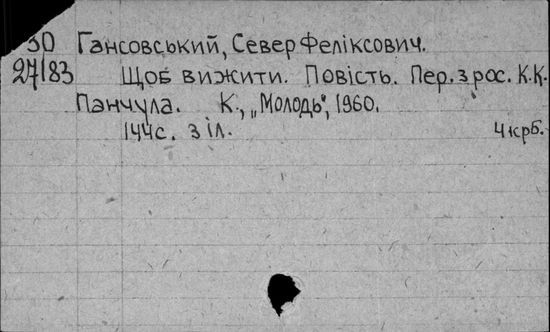 30 Гансовський, Север Феліксович.
27183 Щоб вижити. Повість. Пер. з рос. К.К.
Панчула. К., „Молодь", 1960.
144с. з іл. 4 крб.